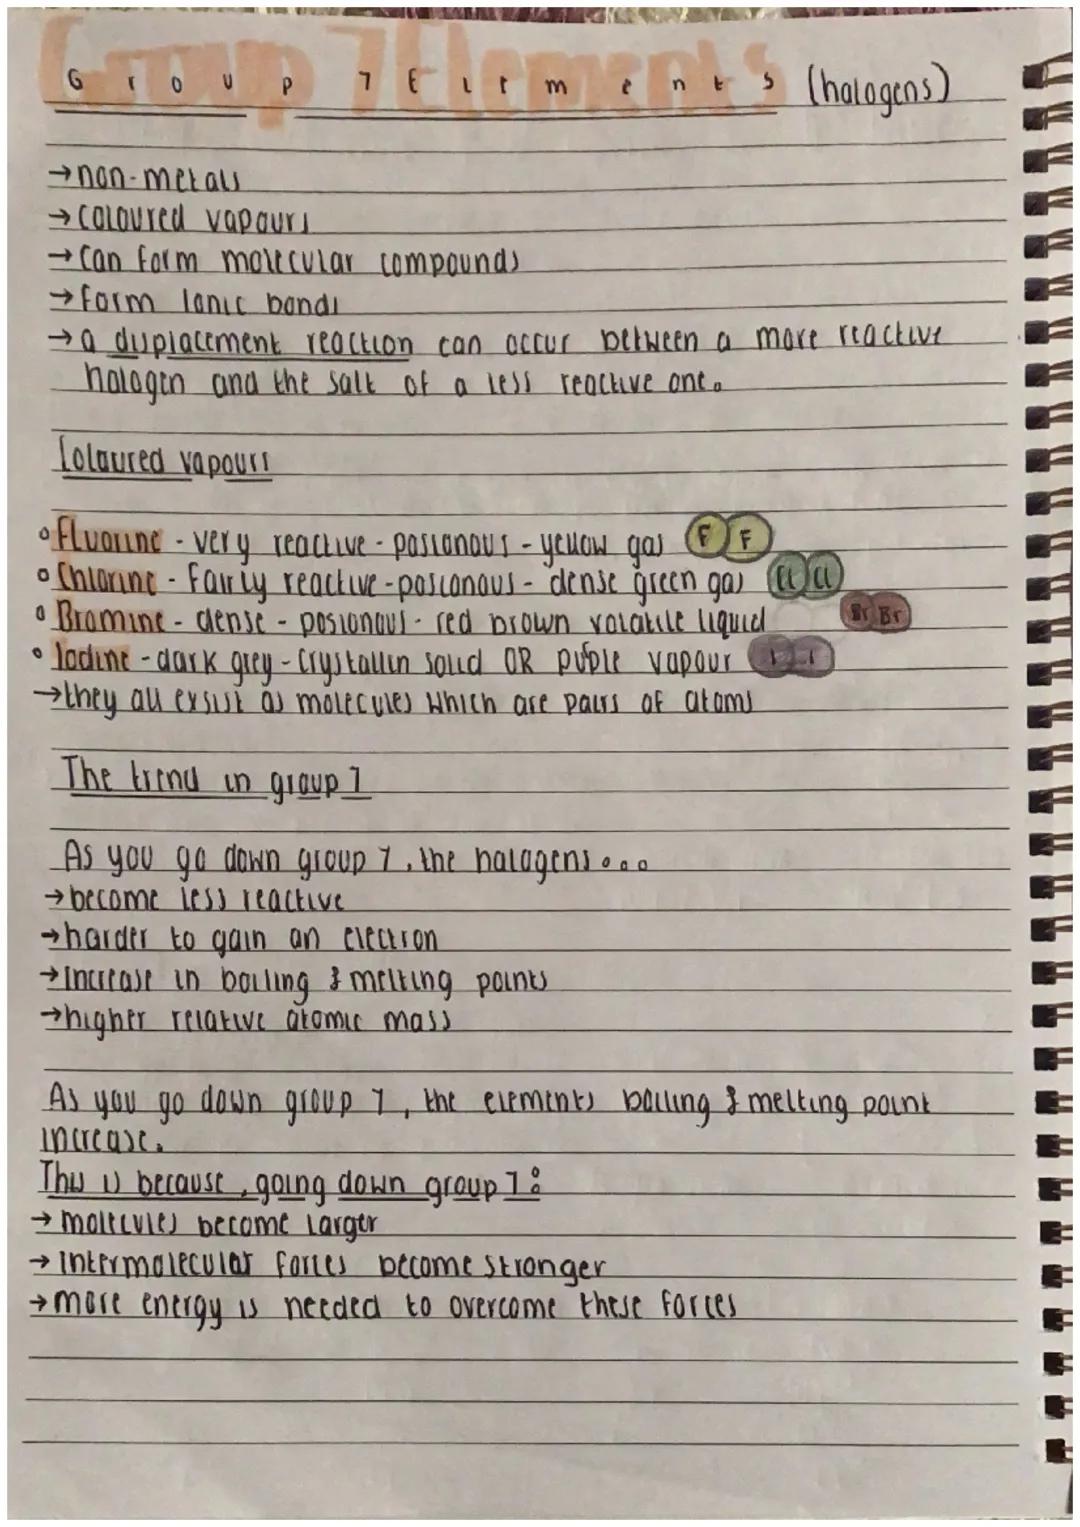 Group 7 Elements (halogens)
→ non-metals
→ coloured vapours
→ Can form molecular compounds
→ form Ionic bonds
→ a displacement reaction can occur between a more reactive
halogen and the salt of a less reactive one.
Coloured vapours
• Fluorine - very reactive - posionous - yellow gas F F
• Chlorine - Fairly reactive - posionous - dense green gas Cl Cl
• Bromine - dense - posionous - red brown volatile liquid Br Br
• Iodine - dark grey - Crystallin solid OR puple vapour I I
→ they all exsist as molecules which are pairs of atoms
The trend in group 7
As you go down group 7, the halogens...
→ become less reactive
→ harder to gain an electron
→ Increase in boiling & melting points
→ higher relative atomic mass
As you go down group 7, the elements boiling & melting point
increase.
This is because, going down group 7:
→ molecules become larger
→ Intermolecular forces become stronger
→ more energy is needed to overcome these forces